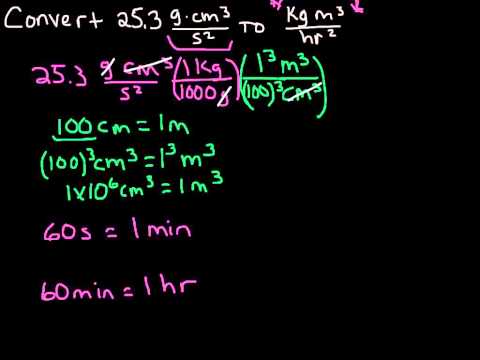 Convert 25.3 g·cm³/s² TO Kg m³/hr²
25.3 g cm³/s² (1 Kg/1000 g)(1³ m³/(100)³ cm³)
100 cm = 1m
(100)³ cm³ = 1³ m³
1x10⁶ cm³ = 1 m³
60s = 1 min
60min = 1 hr